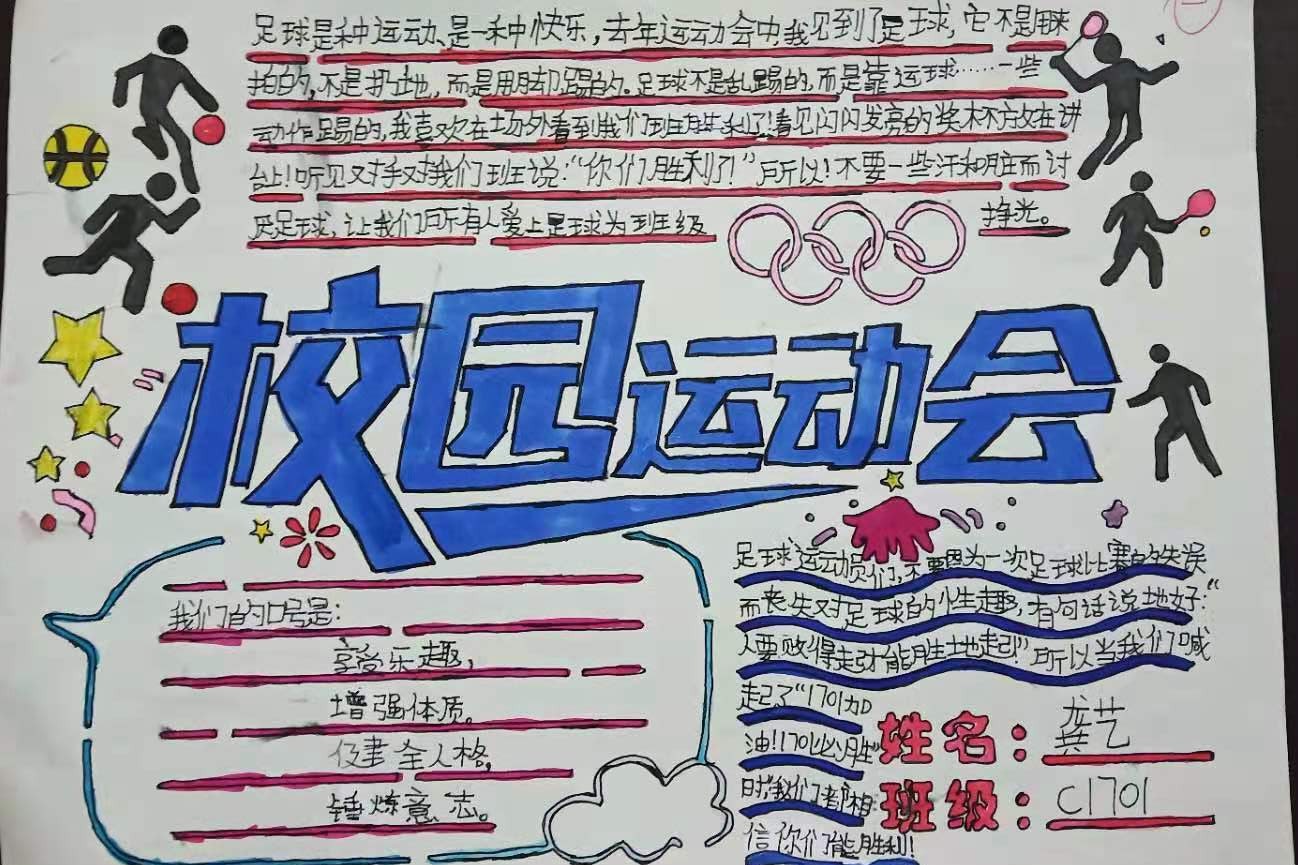 足球是种运动、是一种快乐，去年运动会中，我见到了足球，它不是用来
拍的，不是扔地，而是用脚踢的。足球不是乱踢的，而是靠运球……一些
动作踢的，我喜欢在场外看到我们班胜利了！看见闪闪发亮的奖杯放在讲
台上！听见对手对我们班说：“你们胜利了！”所以！不要一些汗和脏而讨
厌足球，让我们所有人爱上足球为班级
挣光。
校园运动会
我们的口号是：
享受乐趣，
增强体质。
健全人格，
锤炼意志。
足球运动员们，不要因为一次足球比赛的失误
而丧失对足球的性趣，有句话说地好：“
人要败得起才能胜地起！”所以当我们喊
起了“1701加
油！1701必胜”
时，我们都相
信你们能胜利！
姓名：龚艺
班级：C1701